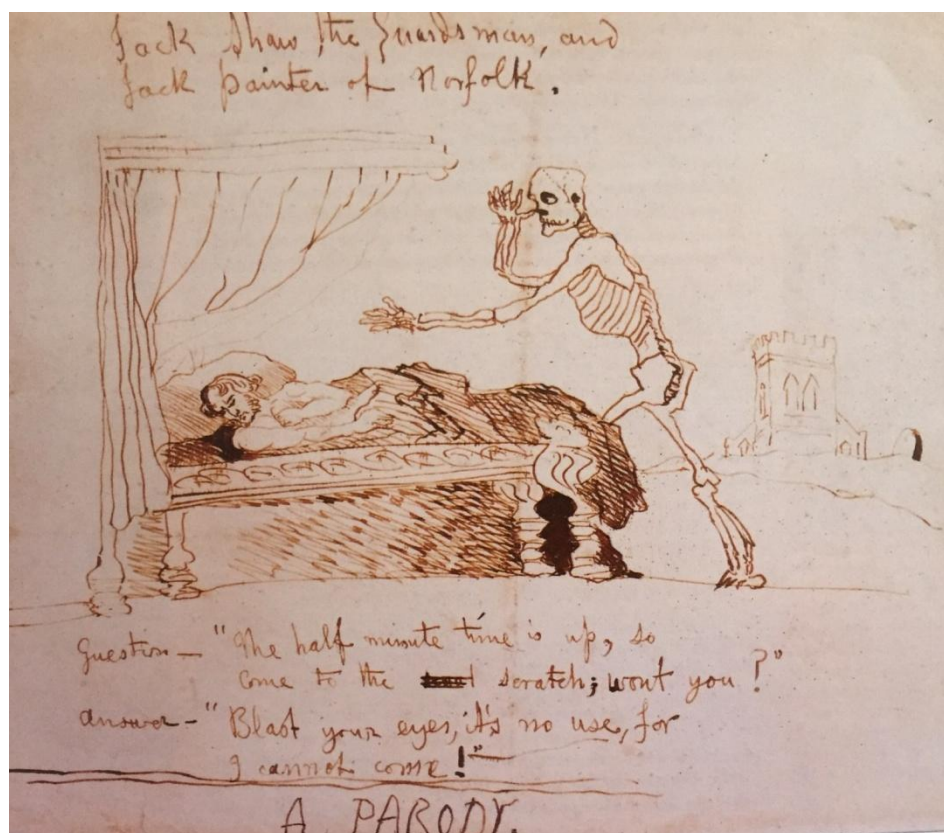 Jack Shaw, the Guardsman, and
Jack painter of Norfolk.
Question — "The half minute time is up, so
come to the scratch; wont you?"
answer — "Blast your eyes, it's no use, for
I cannot come!"
A PARODY.